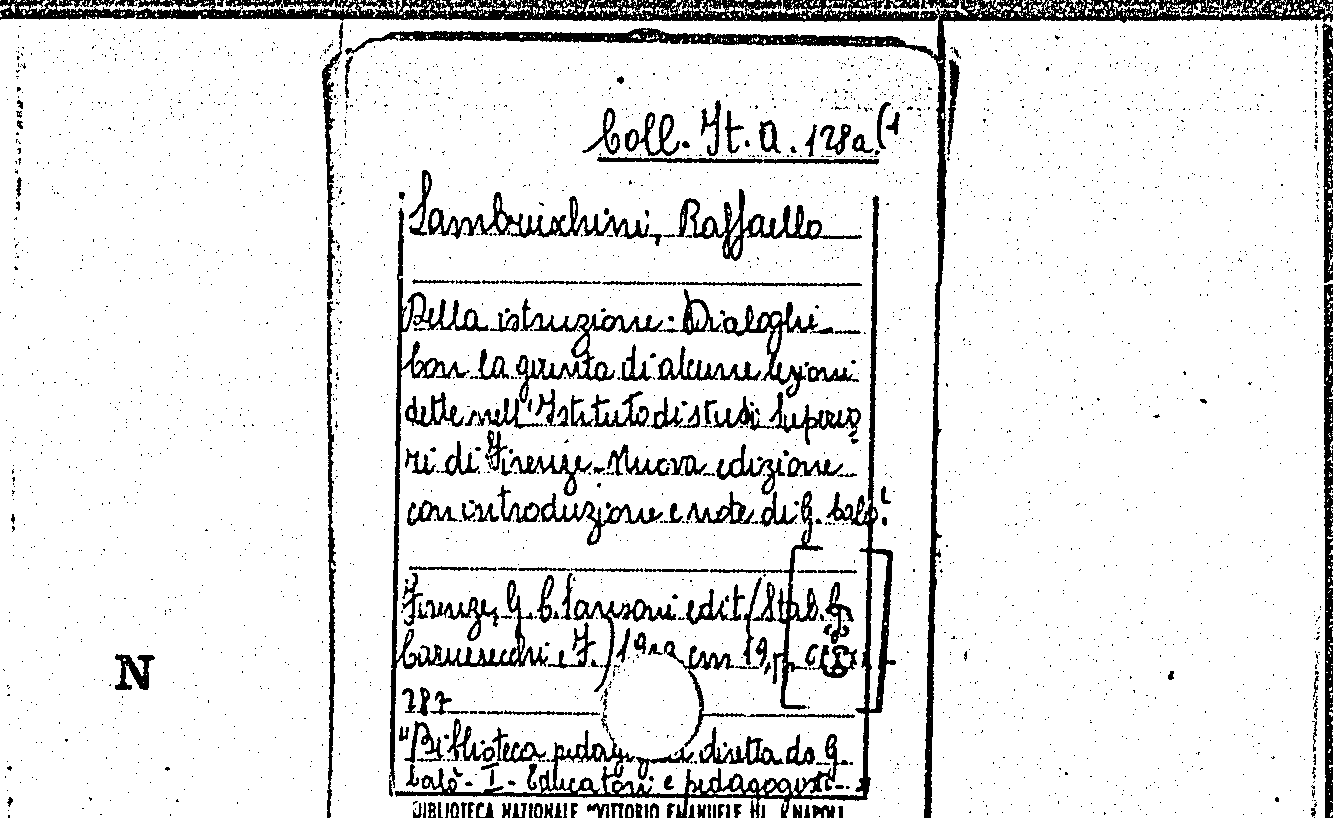 Coll. It. A. 128a (1
Lambruschini, Raffaello
Della istruzione: Dialoghi
Con la giunta di alcune lezioni
dette nell'Istituto di studi Superio
ri di Firenze. Nuova edizione
con introduzione e note di G. Calò.
Firenze, G. C. Sansoni edit. (Stab. G.
Carnesecchi e F.) cm 19, p.
287
"Biblioteca diretta da G.
Calò - I - Educatori e pedagogisti -
BIBLIOTECA NAZIONALE "VITTORIO EMANUELE III" NAPOLI
N